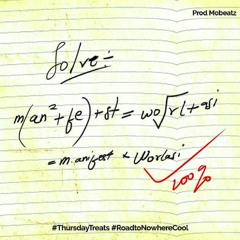 Prod Mobeatz
Solve :-
m(an² + fe) + st = wo√rl + asi
= m.anifest x Worlasi
100%
#ThursdayTreats #RoadtoNowhereCool